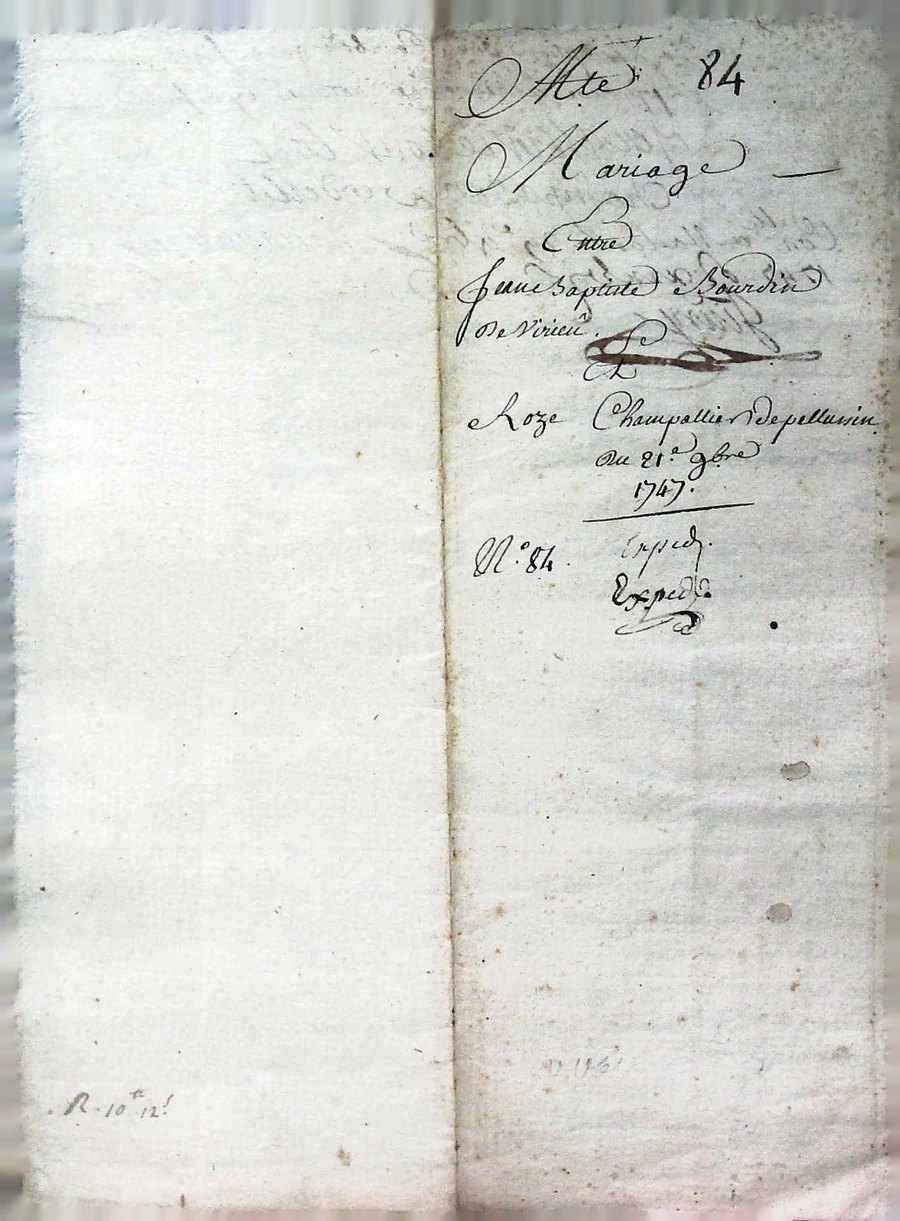 Mte 84
Mariage
Entre
Jean Baptiste Bourdin
De Virieu
Et
Roze Champallier de pellussin
Du 21e 9bre
1747.
N.o 84. Exped.
Expedié
R. 10tt 12s